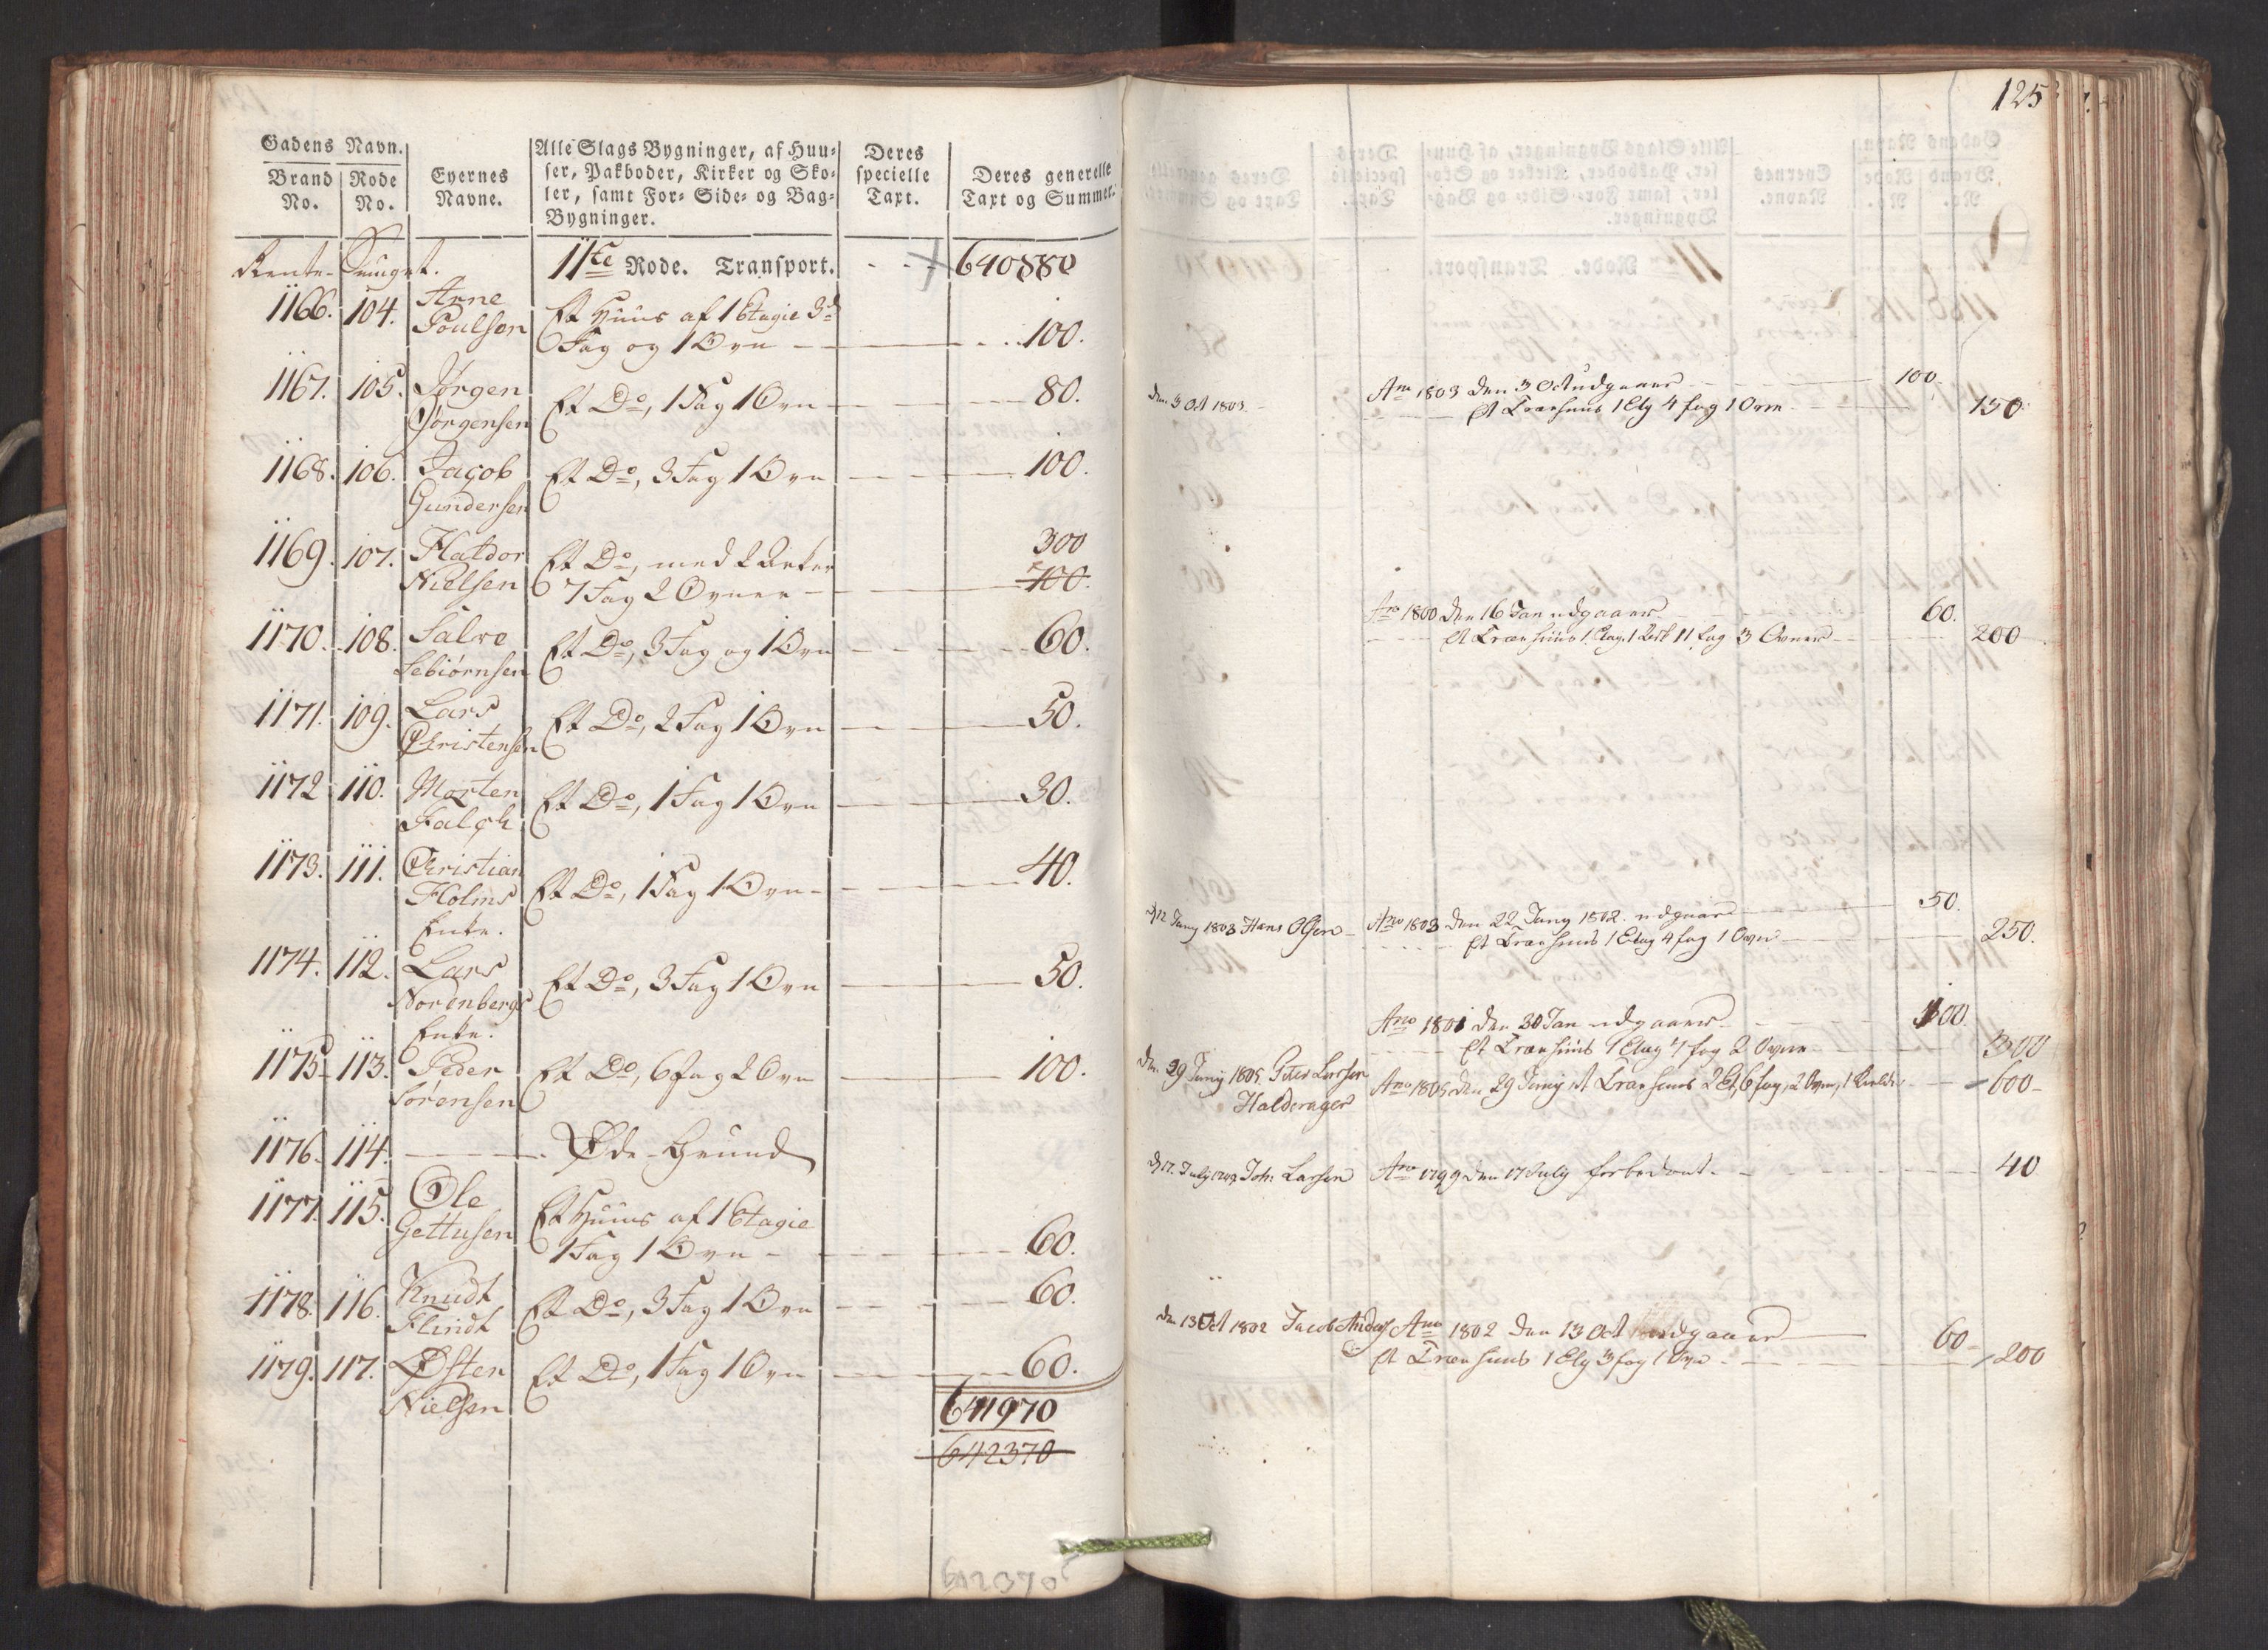 Gadens Navn.
Brand No.
Rode No.
Eyernes Navne.
Alle Slags Bygninger, af Huu-
ser, Pakboder, Kirker og Sko-
ler, samt For- Side- og Bag-
Bygninger.
Deres
specielle
Taxt.
Deres generelle
Taxt og Summer.
11te Rode. Transport. 640880
1166. 104. Arne Et Huus af 1 Etagie 3de
Poulsen Fag og 1 Ovn 100.
1167. 105. Jørgen Et Do, 1 Fag 1 Ovn 80.
Jørgensen
1168. 106. Jacob Et Do, 3 Fag 1 Ovn 100.
Gundersen
300
1169. 107. Haldor Et Do, med 2
Nielsen 7 Fag 2 Ovner 400.
1170. 108. Salve Et Do, 3 Fag og 1 Ovn 60.
Lebiørnsen
1171. 109. Lars Et Do, 2 Fag 1 Ovn 50.
Christensen
1172. 110. Morten Et Do, 1 Fag 1 Ovn 30.
Falch
1173. 111. Christian Et Do, 1 Fag 1 Ovn 40.
Holms
Enke.
1174. 112. Lars Et Do, 3 Fag 1 Ovn 50.
Norenbergs
Enke.
1175. 113. Peder Et Do, 6 fag 2 Ovn 100.
Sørensen
1176. 114. Øde-Grund
1177. 115. Ole Et Huus af 1 Etagie
Gettusen 1 Fag 1 Ovn 60.
1178. 116. Knudt Et Do, 3 Fag 1 Ovn 60.
Flindt
1179. 117. Østen Et Do, 1 Fag 1 Ovn 60.
Nielsen
641970
642370
642370
125
Den 3 Oct 1803. Ano 1803 den 3 Oct udgaaer 100.
Et Træehuus 1 Etg 4 fag 1 Ovn 150
Ano 1800 den 16 Jan udgaaer 60.
Et Træehuus 1 Etag. 1 11 fag 3 Ovner 200
Juny 1803 Hans Olsen Ano 1803 den 22 Juny 1802. udgaaer 50.
Et Træehuus 1 Etag 4 fag 1 Ovn 250.
Ano 1801 den 30 Jan udgaaer 100.
Et Træehuus 1 Etag 4 fag 2 Ovne 300
Den 29 Juny 1805. Peter Larsen Ano 1805 den 29 Juny et Træehuus 2 Et, 6 fag, 2 Ovn, 1 600
Haldorager
d 17. July 1799 Joh: Larsen Ano 1799 den 17 July forbedret 40
den 13 Oct 1802 Jacob Ano 1802 den 13 Oct udgaaer 60
Et Træehuus 1 Etg 3 fag 1 Ovn 200